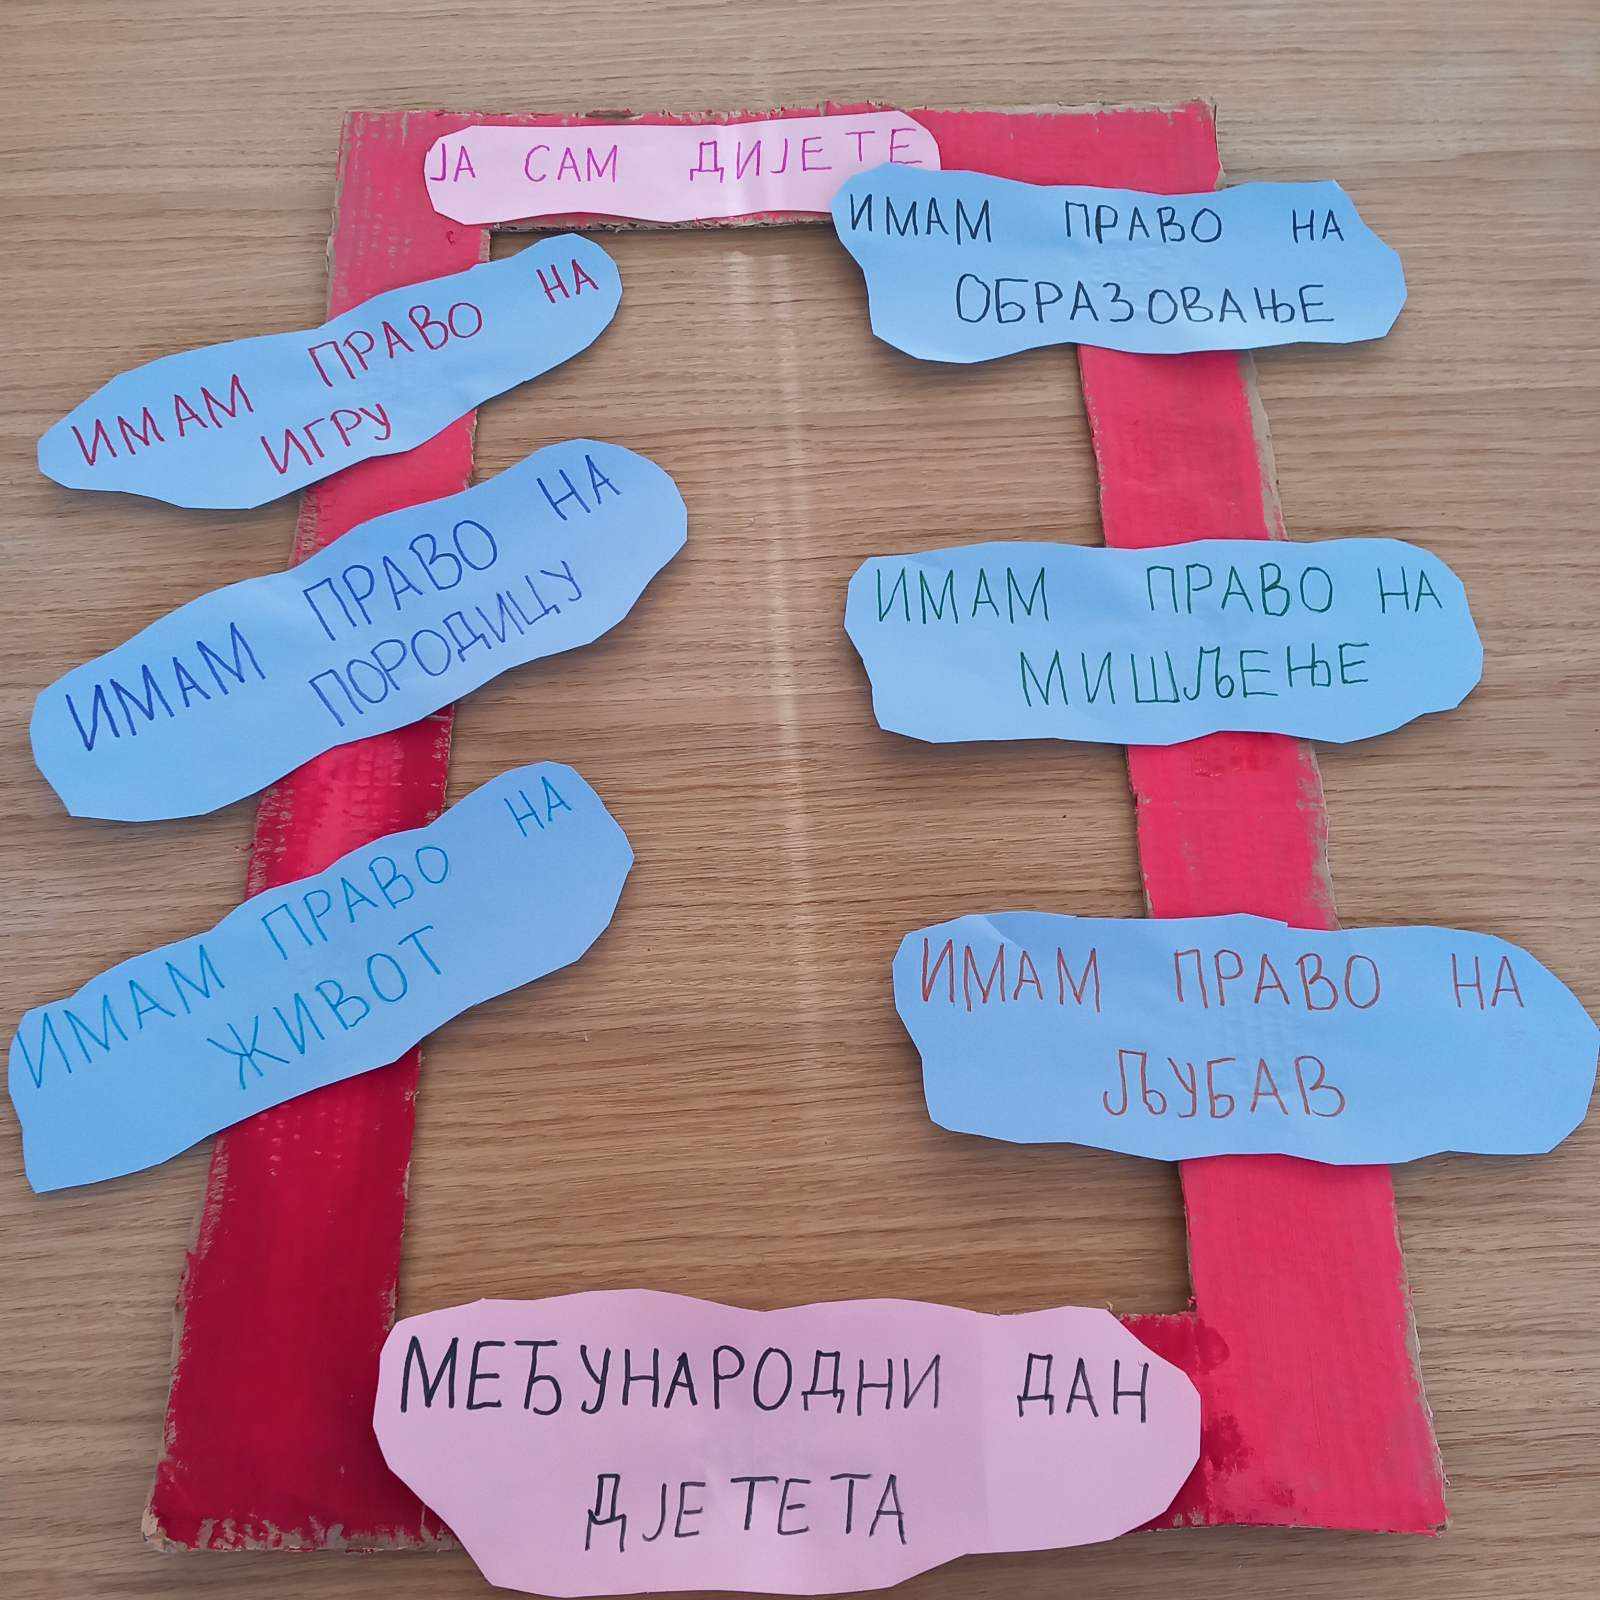 ЈА САМ ДИЈЕТЕ
ИМАМ ПРАВО НА
ИГРУ
ИМАМ ПРАВО НА
ПОРОДИЦУ
ИМАМ ПРАВО НА
ЖИВОТ
ИМАМ ПРАВО НА
ОБРАЗОВАЊЕ
ИМАМ ПРАВО НА
МИШЉЕЊЕ
ИМАМ ПРАВО НА
ЉУБАВ
МЕЂУНАРОДНИ ДАН
ДЈЕТЕТА